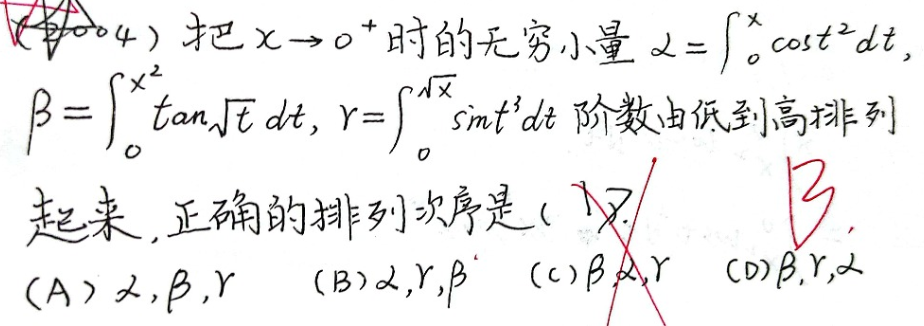 (2004) 把 x→0⁺ 时的无穷小量 α=∫₀ˣ cost² dt,
β=∫₀^{x²} tan√t dt, γ=∫₀^{√x} sint³dt 阶数由低到高排列
起来,正确的排列次序是( ).
B
(A) α,β,γ (B) α,γ,β (C) β,α,γ (D) β,γ,α